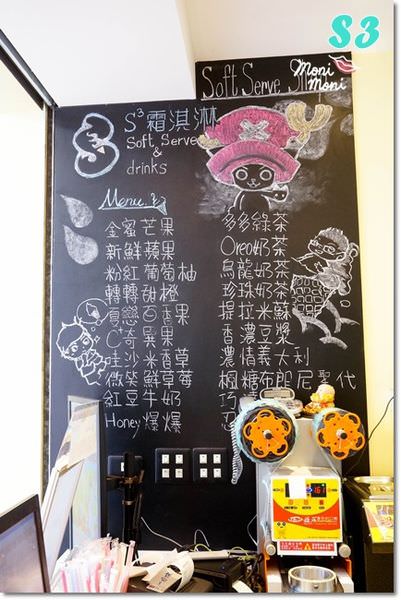 S3
Soft Serve
moni
Moni
S³霜淇淋
Soft Serve
&
drinks
Menu
金蜜芒果
新鮮蘋果
粉紅葡萄柚
轉轉甜橙
夏戀百香果
C奇異果
哇沙米香草
微笑鮮草莓
紅豆牛奶
Honey爆爆
多多綠茶
Oreo奶茶
烏龍奶茶
珍珠奶茶
提拉米蘇
香濃豆漿
濃情義大利
楓糖布朗尼聖代
巧